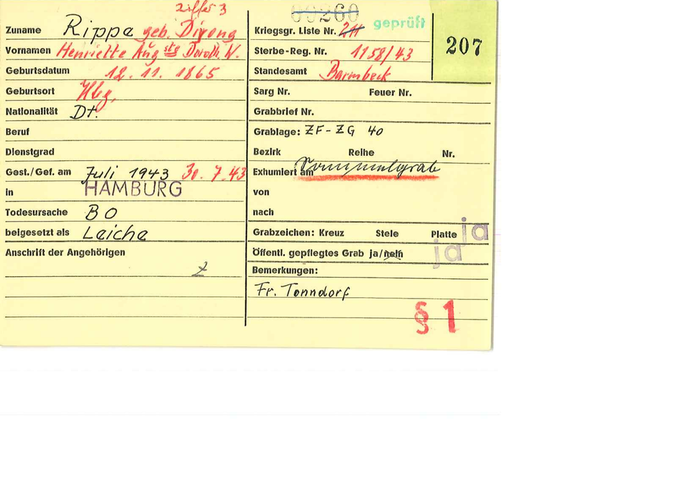 ziffer 3
Zuname Rippe geb.
Vornamen Henriette Aug ste Doroth. W.
Geburtsdatum 12. 11. 1865
Geburtsort Hbg.
Nationalität Dt.
Beruf
Dienstgrad
Gest./Gef. am Juli 1943 30. 7. 43
in HAMBURG
Todesursache BO
beigesetzt als Leiche
Anschrift der Angehörigen
00260 geprüft
Kriegsgr. Liste Nr.
207
Sterbe-Reg. Nr. 1158/43
Standesamt Barmbeck
Sarg Nr. Feuer Nr.
Grabbrief Nr.
Grablage: ZF-ZG 40
Bezirk Reihe Nr.
Exhumiert am
von
nach
Grabzeichen: Kreuz Stele Platte ja
Öffentl. gepflegtes Grab ja/nein ja
Bemerkungen:
Fr. Tonndorf
§ 1